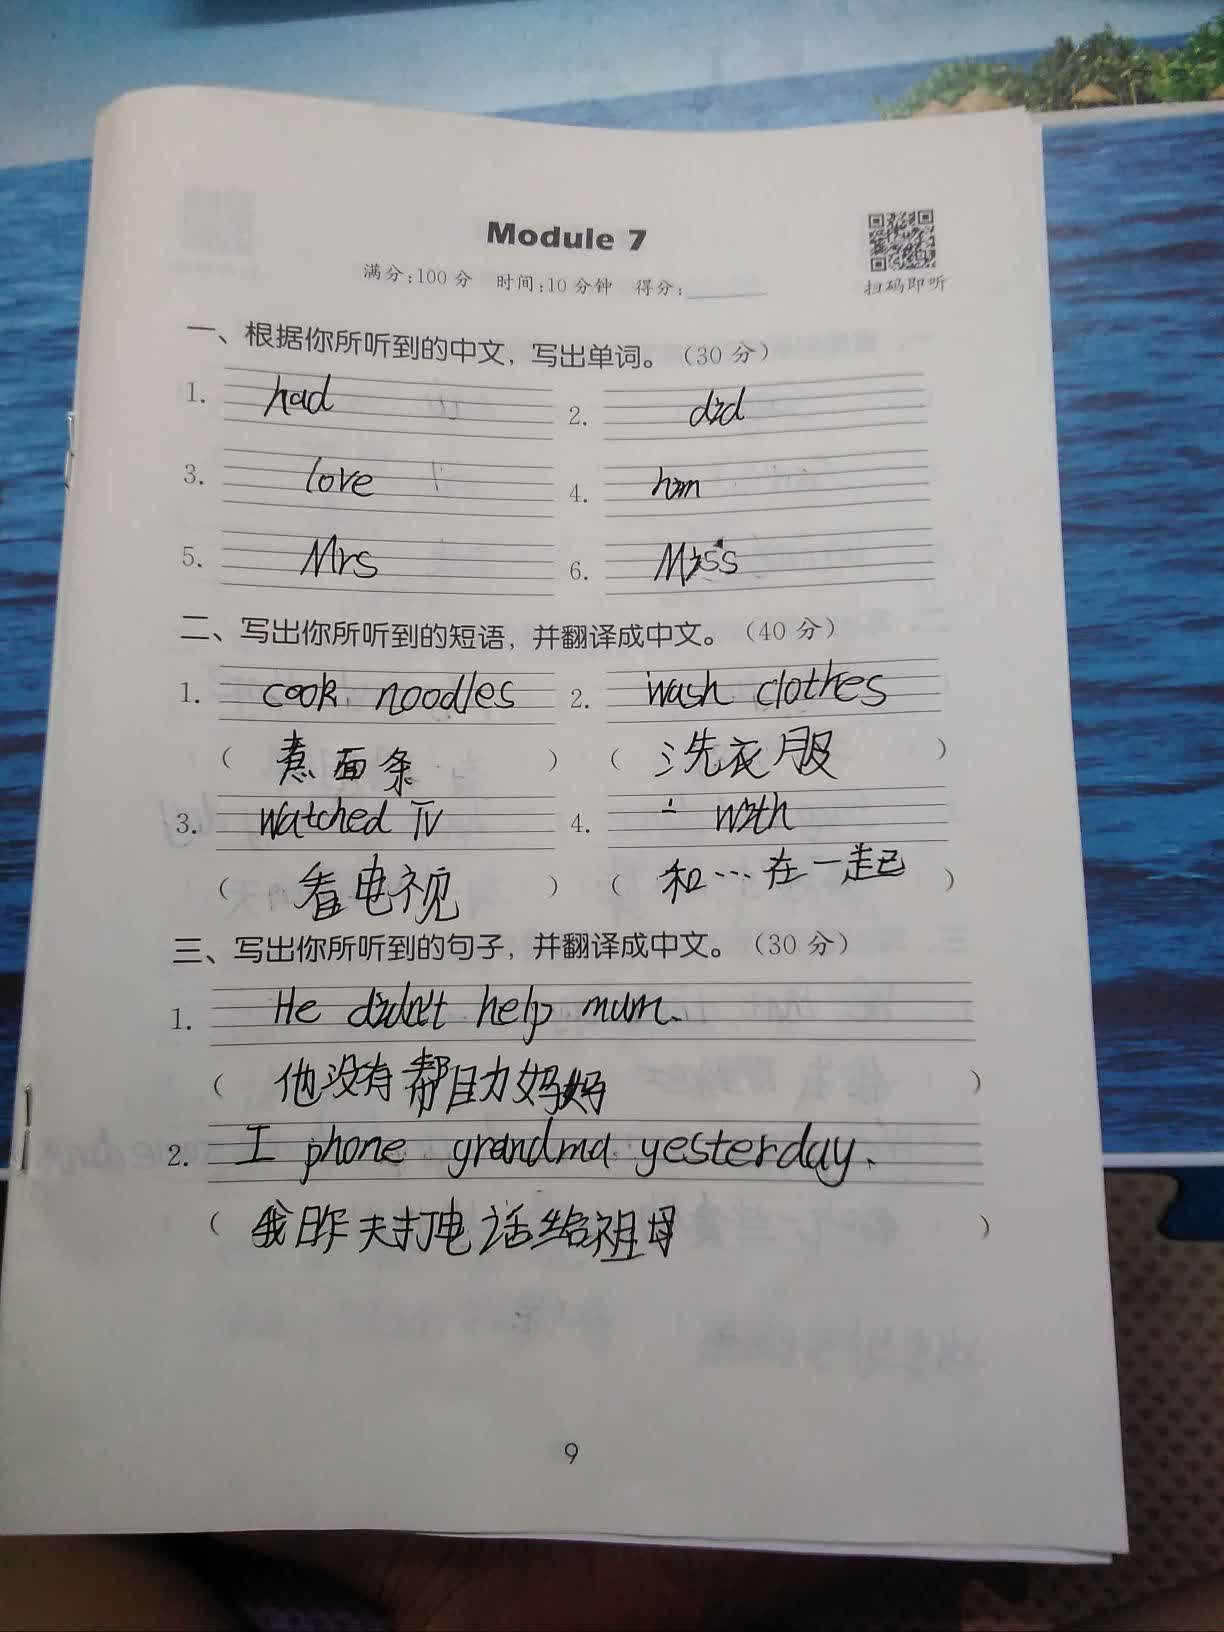 Module 7
满分:100分 时间:10分钟 得分:
扫码即听
一、根据你所听到的中文，写出单词。（30分）
1. had 2. did
3. love 4. him
5. Mrs 6. Miss
二、写出你所听到的短语，并翻译成中文。（40分）
1. cook noodles 2. wash clothes
（ 煮面条 ） （ 洗衣服 ）
3. watched TV 4. with
（ 看电视 ） （ 和…在一起 ）
三、写出你所听到的句子，并翻译成中文。（30分）
1. He didn't help mum.
（ 他没有帮助妈妈 ）
2. I phone grandma yesterday.
（ 我昨天打电话给祖母 ）
9